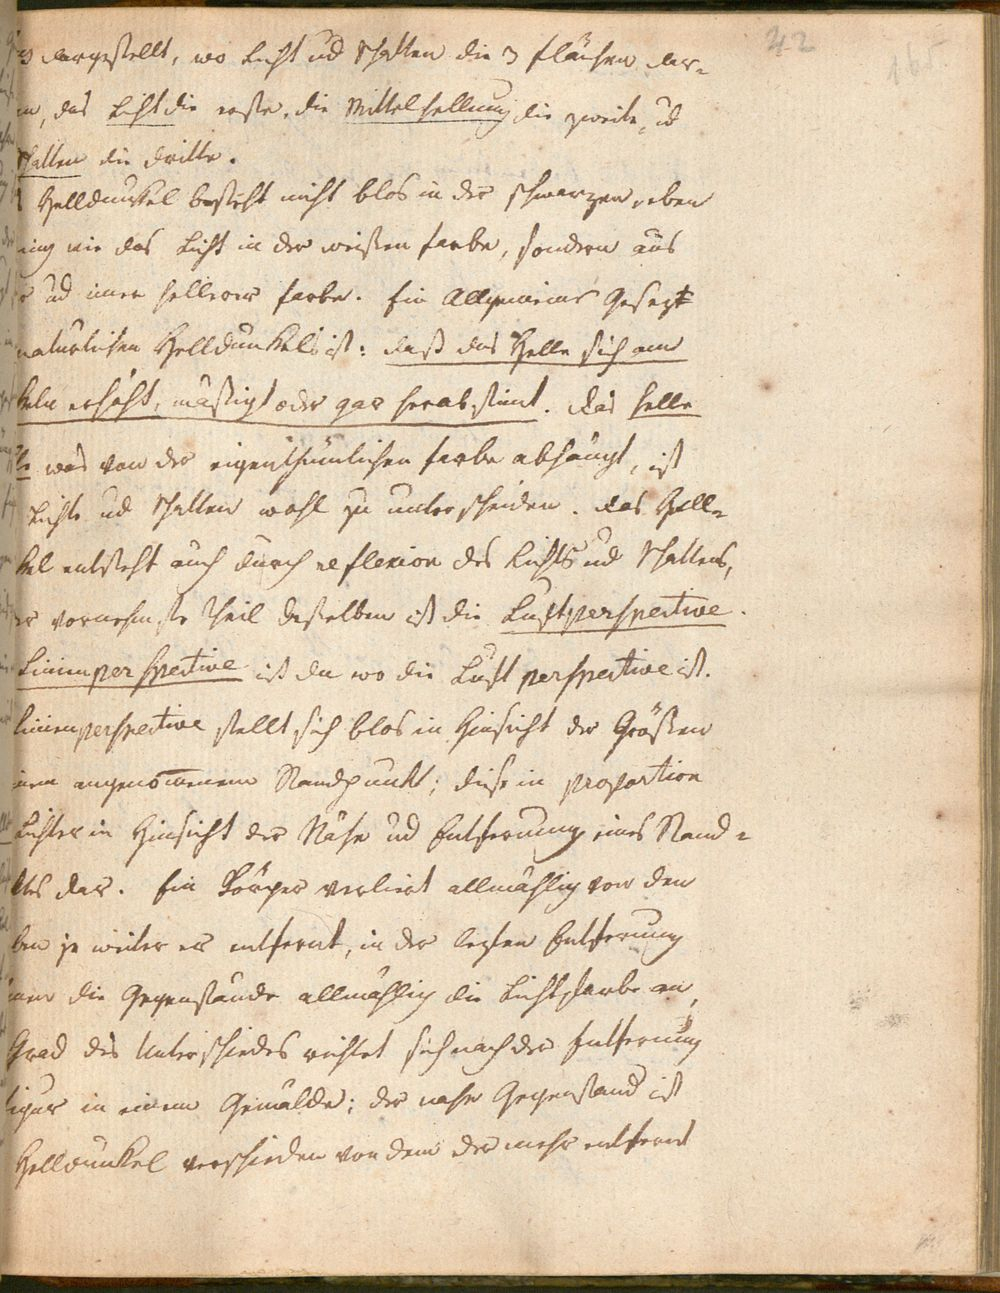 42
165
dargestellt, wo Licht ud Schatten die 3 Flächen dar-
, das Licht die erste, die Mittelhellung die zweite, ud
Schatten die dritte.
Helldunkel besteht nicht blos in der schwarzen, eben
wie das Licht in der weißen Farbe, sondern aus
ud hellerer Farbe. Ein Allgemeines Gesezt
natürlichen Helldunkels ist: daß das Helle sich am
keln erhöht, mäßigt oder gar herabstimt. Das helle
was von der eigenthümlichen Farbe abhängt, ist
Lichte ud Schatten wohl zu unterscheiden. Das Hell-
kel entsteht auch durch reflexion des Lichts ud Schattens,
vornehmste Theil desselben ist die Luftperspective.
Linienperspective ist da wo die Luftperspective ist.
Linienperspective stellt sich blos in Hinsicht der Größen
angenommenen Standpunkt; diese in proportion
Lichtes in Hinsicht der Nähe ud Entfernung eines Stand-
ktes dar. Ein Körper verliert allmählig von den
ben je weiter er entfernt, in der lezten Entfernung
die Gegenstände allmählig die Lichtfarbe an,
Grad des Unterschiedes richtet sich nach der Entfernung
in einem Gemälde; der nahe Gegenstand ist
Helldunkel verschieden von dem der mehr entfernt